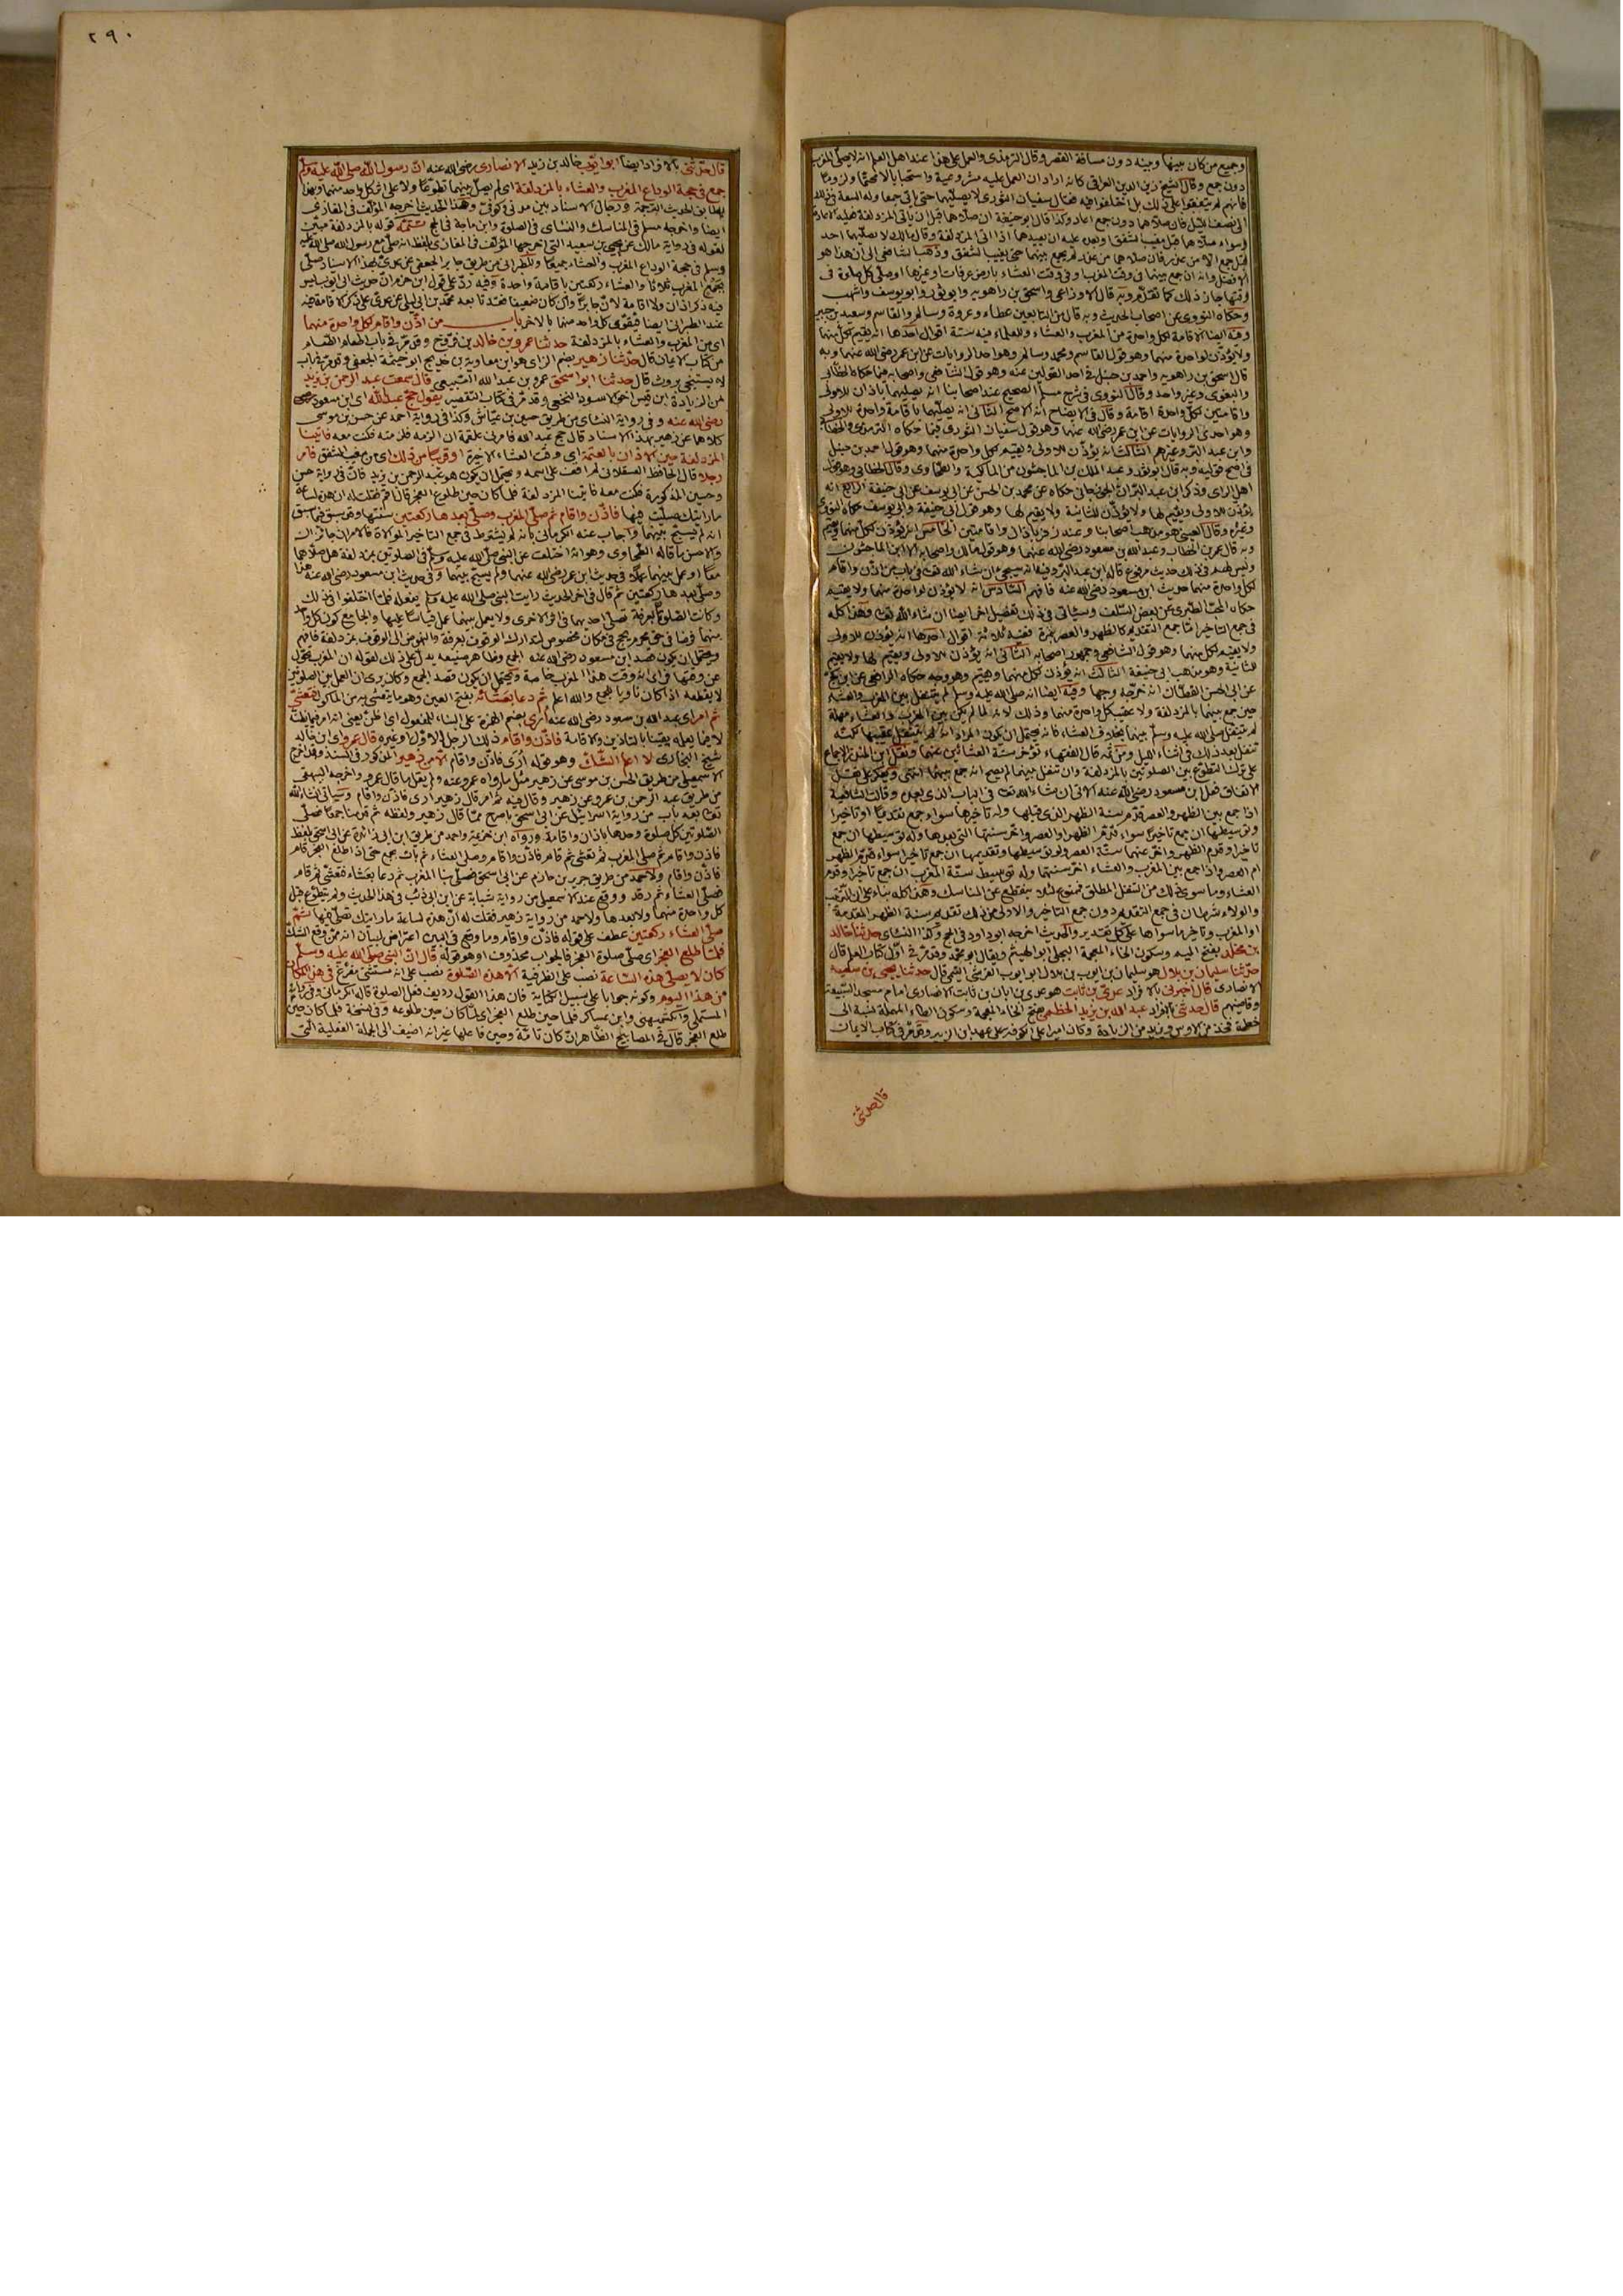 وجميع من كان بينها وبينه دون مسافة القصر وقال الترمذي والعمل على هذا عند اهل العلم انه لا يصلى المغرب
دون جمع وقال الشيخ زين الدين العراقي كانه اراد ان العمل عليه مشروعية واستحبابا لا تحتما ولا لزوما
فانهم لم يتفقوا على ذلك بل اختلفوا فيه فقال سفيان الثوري لا يصليهما حتى يأتى جمعا وله السعة في ذلك
الى نصف الليل فان صلاهما دون جمع اعاد وكذا قال ابو حنيفة ان صلاهما قبل ان يأتى المزدلفة فعليه الاعادة
وسواء صلاهما قبل مغيب الشفق او بعده عليه ان يعيدهما اذا اتى المزدلفة وقال مالك لا يصليهما احد
قبل جمع الا من عذر فان صلاهما من عذر لم يجمع بينهما حتى يغيب الشفق وذهب الشافعي الى ان هذا هو
الافضل وانه ان جمع بينهما في وقت المغرب او في وقت العشاء بارض عرفات او غيرها او صلى كل صلوة في
وقتها جاز ذلك كما تقدم وبه قال الاوزاعي واسحق بن راهويه وابو ثور وابو يوسف واشهب
وحكاه النووي عن اصحاب الحديث وبه قال من التابعين عطاء وعروة وسالم والقاسم وسعيد بن جبير
وفيه ايضا الاقامة لكل واحدة من المغرب والعشاء وللعلماء فيه ستة اقوال احدها انه يقيم لكل منهما
ولا يؤذن لواحدة منهما وهو قول القاسم ومحمد وسالم وهو احد الروايات عن ابن عمر رضي الله عنهما وبه
قال اسحق بن راهويه واحمد بن حنبل في احد القولين عنه وهو قول الشافعي واصحابه فيما حكاه الخطابي
والبغوي وغير واحد وقال النووي في شرح مسلم الصحيح عند اصحابنا انه يصليهما باذان للاولى
واقامتين لكل واحدة اقامة وقال في الايضاح انه الاصح الثاني انه يصليهما باقامة واحدة للاولى
وهو احدى الروايات عن ابن عمر رضي الله عنهما وهو قول سفيان الثوري فيما حكاه الترمذي والخطابي
وابن عبد البر وغيرهم الثالث انه يؤذن للاولى ويقيم لكل واحدة منهما وهو قول احمد بن حنبل
في اصح قوليه وبه قال ابو ثور وعبد الملك بن الماجشون من المالكية والطحاوي وقال الخطابي وهو قول
اهل الراى وذكر ابن عبد البر ان الجوزجاني حكاه عن محمد بن الحسن عن ابي يوسف عن ابي حنيفة الرابع انه
يؤذن للاولى ويقيم لها ولا يؤذن للثانية ولا يقيم لها وهو قول ابي حنيفة وابي يوسف حكاه النووي
وغيره وقال العيني هو مذهب اصحابنا وعند زفر باذان واقامتين الخامس انه يؤذن لكل منهما ويقيم
وبه قال عمر بن الخطاب وعبد الله بن مسعود رضي الله عنهما وهو قول مالك واصحابه الا ابن الماجشون
وليس لهم في ذلك حديث مرفوع قاله ابن عبد البر وفيه انه سيجئ ان شاء الله تعالى في باب من اذن واقام
لكل واحدة منهما حديث ابن مسعود رضي الله عنه فافهم السادس انه لا يؤذن لواحدة منهما ولا يقيم
حكاه المحب الطبري عن بعض السلف وسيأتي في ذلك تفصيل اخر ايضا ان شاء الله تعالى وهذا كله
في جمع التاخير اما جمع التقديم كالظهر والعصر بنمرة ففيه ثلاثة اقوال احدها انه يؤذن للاولى
ولا يقيم لكل منهما وهو قول الشافعي وجمهور اصحابه الثاني انه يؤذن للاولى ويقيم لها ولا يقيم
للثانية وهو مذهب ابي حنيفة الثالث انه يؤذن لكل منهما ويقيم وهو وجه حكاه الرافعي عن ابن كج
عن ابي الحسن القطان انه خرجه وجها وفيه ايضا انه صلى الله عليه وسلم لم يتنفل بين المغرب والعشاء
حين جمع بينهما بالمزدلفة ولا عقيب كل واحدة منهما وذلك لانه لما لم يكن بين المغرب والعشاء مهلة
لم يتنفل صلى الله عليه وسلم بينهما بخلاف العشاء فانه يحتمل ان يكون المراد انه لم يتنفل عقيبها لكنه
تنفل بعد ذلك في اثناء الليل ومن ثمه قال الفقهاء تؤخر سنة العشائين عنهما ونقل ابن المنذر الاجماع
على ترك التطوع بين الصلوتين بالمزدلفة وان تنفل بينهما لم يصح انه جمع بينهما انتهى ويعكر على نقل
الاتفاق فعل ابن مسعود رضي الله عنه الاتي ان شاء الله تعالى في الباب الذي بعده وقالت الشافعية
اذا جمع بين الظهر والعصر قدم سنة الظهر الذي قبلها وله تاخيرها سواء جمع تقديما او تاخيرا
وتوسيطها ان جمع تاخيرا سواء قدم الظهر او العصر واخر سنتها التي بعدها وله توسيطها ان جمع
تاخيرا وقدم الظهر واخر عنهما سنة العصر وله توسيطها وتقديمها ان جمع تاخيرا سواء قدم الظهر
ام العصر واذا جمع بين المغرب والعشاء اخر سنتيهما وله توسيط سنة المغرب ان جمع تاخيرا وقدم
العشاء وما سوى ذلك من التنفل المطلق ممنوع لئلا ينقطع عن المناسك وهذا كله بناء على ان الترتيب
والولاء شرطان في جمع التقديم دون جمع التاخير والاولى من ذلك تقديم سنة الظهر المقدمة
او المغرب وتاخير ما سواها على كل تقدير والحديث اخرجه ابو داود في الحج وكذا النسائي حدثنا خالد
بن مخلد بفتح الميم وسكون الخاء المعجمة البجلي ابو الهيثم ويقال ابو محمد وقد مر في اول كتاب العلم قال
حدثنا سليمان بن بلال هو سليمان بن ايوب بن بلال ابو ايوب القرشي التيمي قال حدثنا يحيى بن سعيد
الانصاري قال اخبرني بالافراد عدي بن ثابت هو عدي بن ابان بن ثابت الانصاري امام مسجد الشيعة
وقاضيهم قال حدثني بالافراد عبد الله بن يزيد الخطمي بفتح الخاء المعجمة وسكون الطاء المهملة نسبة الى
خطمة فخذ من الاوس ويزيد من الزيادة وكان اميرا على الكوفة على عهد ابن الزبير وقد مر في كتاب الايمان
قال حدثني
٢٩٠
قال حدثني بالافراد ايضا ابو ايوب خالد بن زيد الانصاري رضي الله عنه ان رسول الله صلى الله عليه وسلم
جمع في حجة الوداع المغرب والعشاء بالمزدلفة اى لم يصل بينهما تطوعا ولا على اثر كل واحد منهما وبهذا
يطابق الحديث الترجمة ورجال الاسناد بين مدني وكوفي وهذا الحديث اخرجه المؤلف في المغازي
ايضا واخرجه مسلم في المناسك والنسائي في الصلوة وابن ماجة في الحج تتمة قوله بالمزدلفة مبين
لقوله في رواية مالك عن يحيى بن سعيد التي اخرجها المؤلف في المغازي بلفظ انه صلى مع رسول الله صلى الله عليه
وسلم في حجة الوداع المغرب والعشاء جميعا وللطبراني من طريق جابر الجعفي عن عدي بهذا الاسناد صلى
بجمع المغرب ثلاثا والعشاء ركعتين باقامة واحدة وفيه رد على قول ابن حزم ان حديث ابي ايوب ليس
فيه ذكر اذان ولا اقامة لان جابرا وان كان ضعيفا فقد تابعه محمد بن ابي ليلى عن عدي على ذكر الاقامة فيه
عند الطبراني ايضا فيقوى كل واحد منهما بالاخر باب من اذن واقام لكل واحدة منهما
اى من المغرب والعشاء بالمزدلفة حدثنا عمرو بن خالد بن فروخ وقد مر في باب اطعام الطعام
من كتاب الايمان قال حدثنا زهير بضم الزاى هو ابن معاوية بن خديج ابو خيثمة الجعفي وقد مر في باب
لا يستنجى بروث قال حدثنا ابو اسحق عمرو بن عبد الله السبيعي قال سمعت عبد الرحمن بن يزيد
من الزيادة ابن قيس اخو الاسود النخعي وقد مر في كتاب التقصير يقول حج عبد الله اى ابن مسعود
رضي الله عنه وفي رواية النسائي من طريق حسين بن عياش وكذا في رواية احمد عن حسن بن موسى
كلاهما عن زهير بهذا الاسناد قال حج عبد الله فامرني علقمة ان الزمه فلزمته فكنت معه فاتينا
المزدلفة حين الاذان بالعتمة اى وقت العشاء الاخيرة او قريبا من ذلك اى من مغيب الشفق فامر
رجلا قال الحافظ العسقلاني لم اقف على اسمه ويحتمل ان يكون هو عبد الرحمن بن يزيد فان في رواية حسن
وحسين المذكورة فكنت معه فاتينا المزدلفة فلما كان حين طلوع الفجر قال قم فقلت له ان هذه لساعة
ما رايتك صليت فيها فاذن واقام ثم صلى المغرب وصلى بعدها ركعتين سنتها وقد سبق فيما سبق
انه لم يسبح بينهما واجاب عنه الكرماني بانه لم يشترط في جمع التاخير الموالاة فالامران جائزان
والاحسن ما قاله الطحاوي وهو انه اختلف عن النبي صلى الله عليه وسلم في الصلوتين بمزدلفة هل صلاهما
معا او عمل بينهما عملا ففي حديث ابن عمر رضي الله عنهما ولم يسبح بينهما وفي حديث ابن مسعود رضي الله عنه هذا
وصلى بعدها ركعتين ثم قال في اخر الحديث رايت النبي صلى الله عليه وسلم يفعله فلما اختلفوا في ذلك
وكانت الصلوتان بعرفة تصلى احديهما في اثر الاخرى ولا يعمل بينهما عمل قياسا عليها والجامع كون كل واحد
منهما فرضا في حق محرم بحج في مكان مخصوص لتدارك الوقوف بعرفة والنهوض الى الوقوف بمزدلفة فافهم
ويحتمل ان يكون قصد ابن مسعود رضي الله عنه الجمع وظاهر صنيعه يدل على ذلك لقوله ان المغرب تحول
عن وقتها فراى انه وقت هذا المغرب خاصة ويحتمل ان يكون قصد الجمع وكان يرى ان العمل بين الصلوتين
لا يقطعه اذا كان ناويا للجمع والله اعلم ثم دعا بعشائه بفتح العين وهو ما يتعشى به من الماكول فتعشى
ثم امر اى عبد الله بن مسعود رضي الله عنه ارى بضم الهمزة على البناء للمفعول اى اظن يعني انه امر فيما يظنه
لا فيما يعلمه يقينا بالتاذين والاقامة فاذن واقام ذلك الرجل الاول او غيره قال عمرو اى ابن خالد
شيخ البخاري لا اعلم الشك وهو قوله ارى فاذن واقام الا من زهير المذكور في السند وقد اخرج
الاسمعيلي من طريق الحسن بن موسى عن زهير مثل ما رواه عمرو عنه ولم يقل ما قال عمرو واخرجه البيهقي
من طريق عبد الرحمن بن عمرو عن زهير وقال فيه ثم امر قال زهير ارى فاذن واقام وسيأتي ان شاء الله
تعالى بعد باب من رواية اسرائيل عن ابي اسحق باصرح مما قال زهير ولفظه ثم قدمنا جمعا فصلى
الصلوتين كل صلوة وحدها باذان واقامة ورواه ابن خزيمة واحمد من طريق ابن ابي زائدة عن ابي اسحق بلفظ
فاذن واقام ثم صلى المغرب ثم تعشى ثم قام فاذن واقام وصلى العشاء ثم بات بجمع حتى اذا طلع الفجر قام
فاذن واقام ولاحمد من طريق جرير بن حازم عن ابي اسحق فصلى بنا المغرب ثم دعا بعشاء فتعشى ثم قام
فصلى العشاء ثم رقد ووقع عند الاسمعيلي من رواية شبابة عن ابن ابي ذئب في هذا الحديث ولم يتطوع قبل
كل واحدة منهما ولا بعدها ولاحمد من رواية زهير فقلت له ان هذه لساعة ما رايتك تصلى فيها ثم
صلى العشاء ركعتين عطف على قوله فاذن واقام وما وقع في البين اعتراض لبيان انه ممن وقع الشك
فلما طلع الفجر اى صلى صلوة الفجر فالجواب محذوف او هو قوله قال ان النبي صلى الله عليه وسلم
كان لا يصلى هذه الساعة نصب على الظرفية الا هذه الصلوة نصب على انه مستثنى مفرغ في هذا المكان
من هذا اليوم وكونه جوابا على سبيل الكناية فان هذا القول رديف فعل الصلوة قاله الكرماني وفي رواية
المستملي والكشميهني وابن عساكر فلما حين طلع الفجر اى لما كان حين طلوعه وفي نسخة فلما كان حين
طلع الفجر قال في المصابيح الظاهر ان كان تامة وحين فاعلها غير انه اضيف الى الجملة الفعلية التي